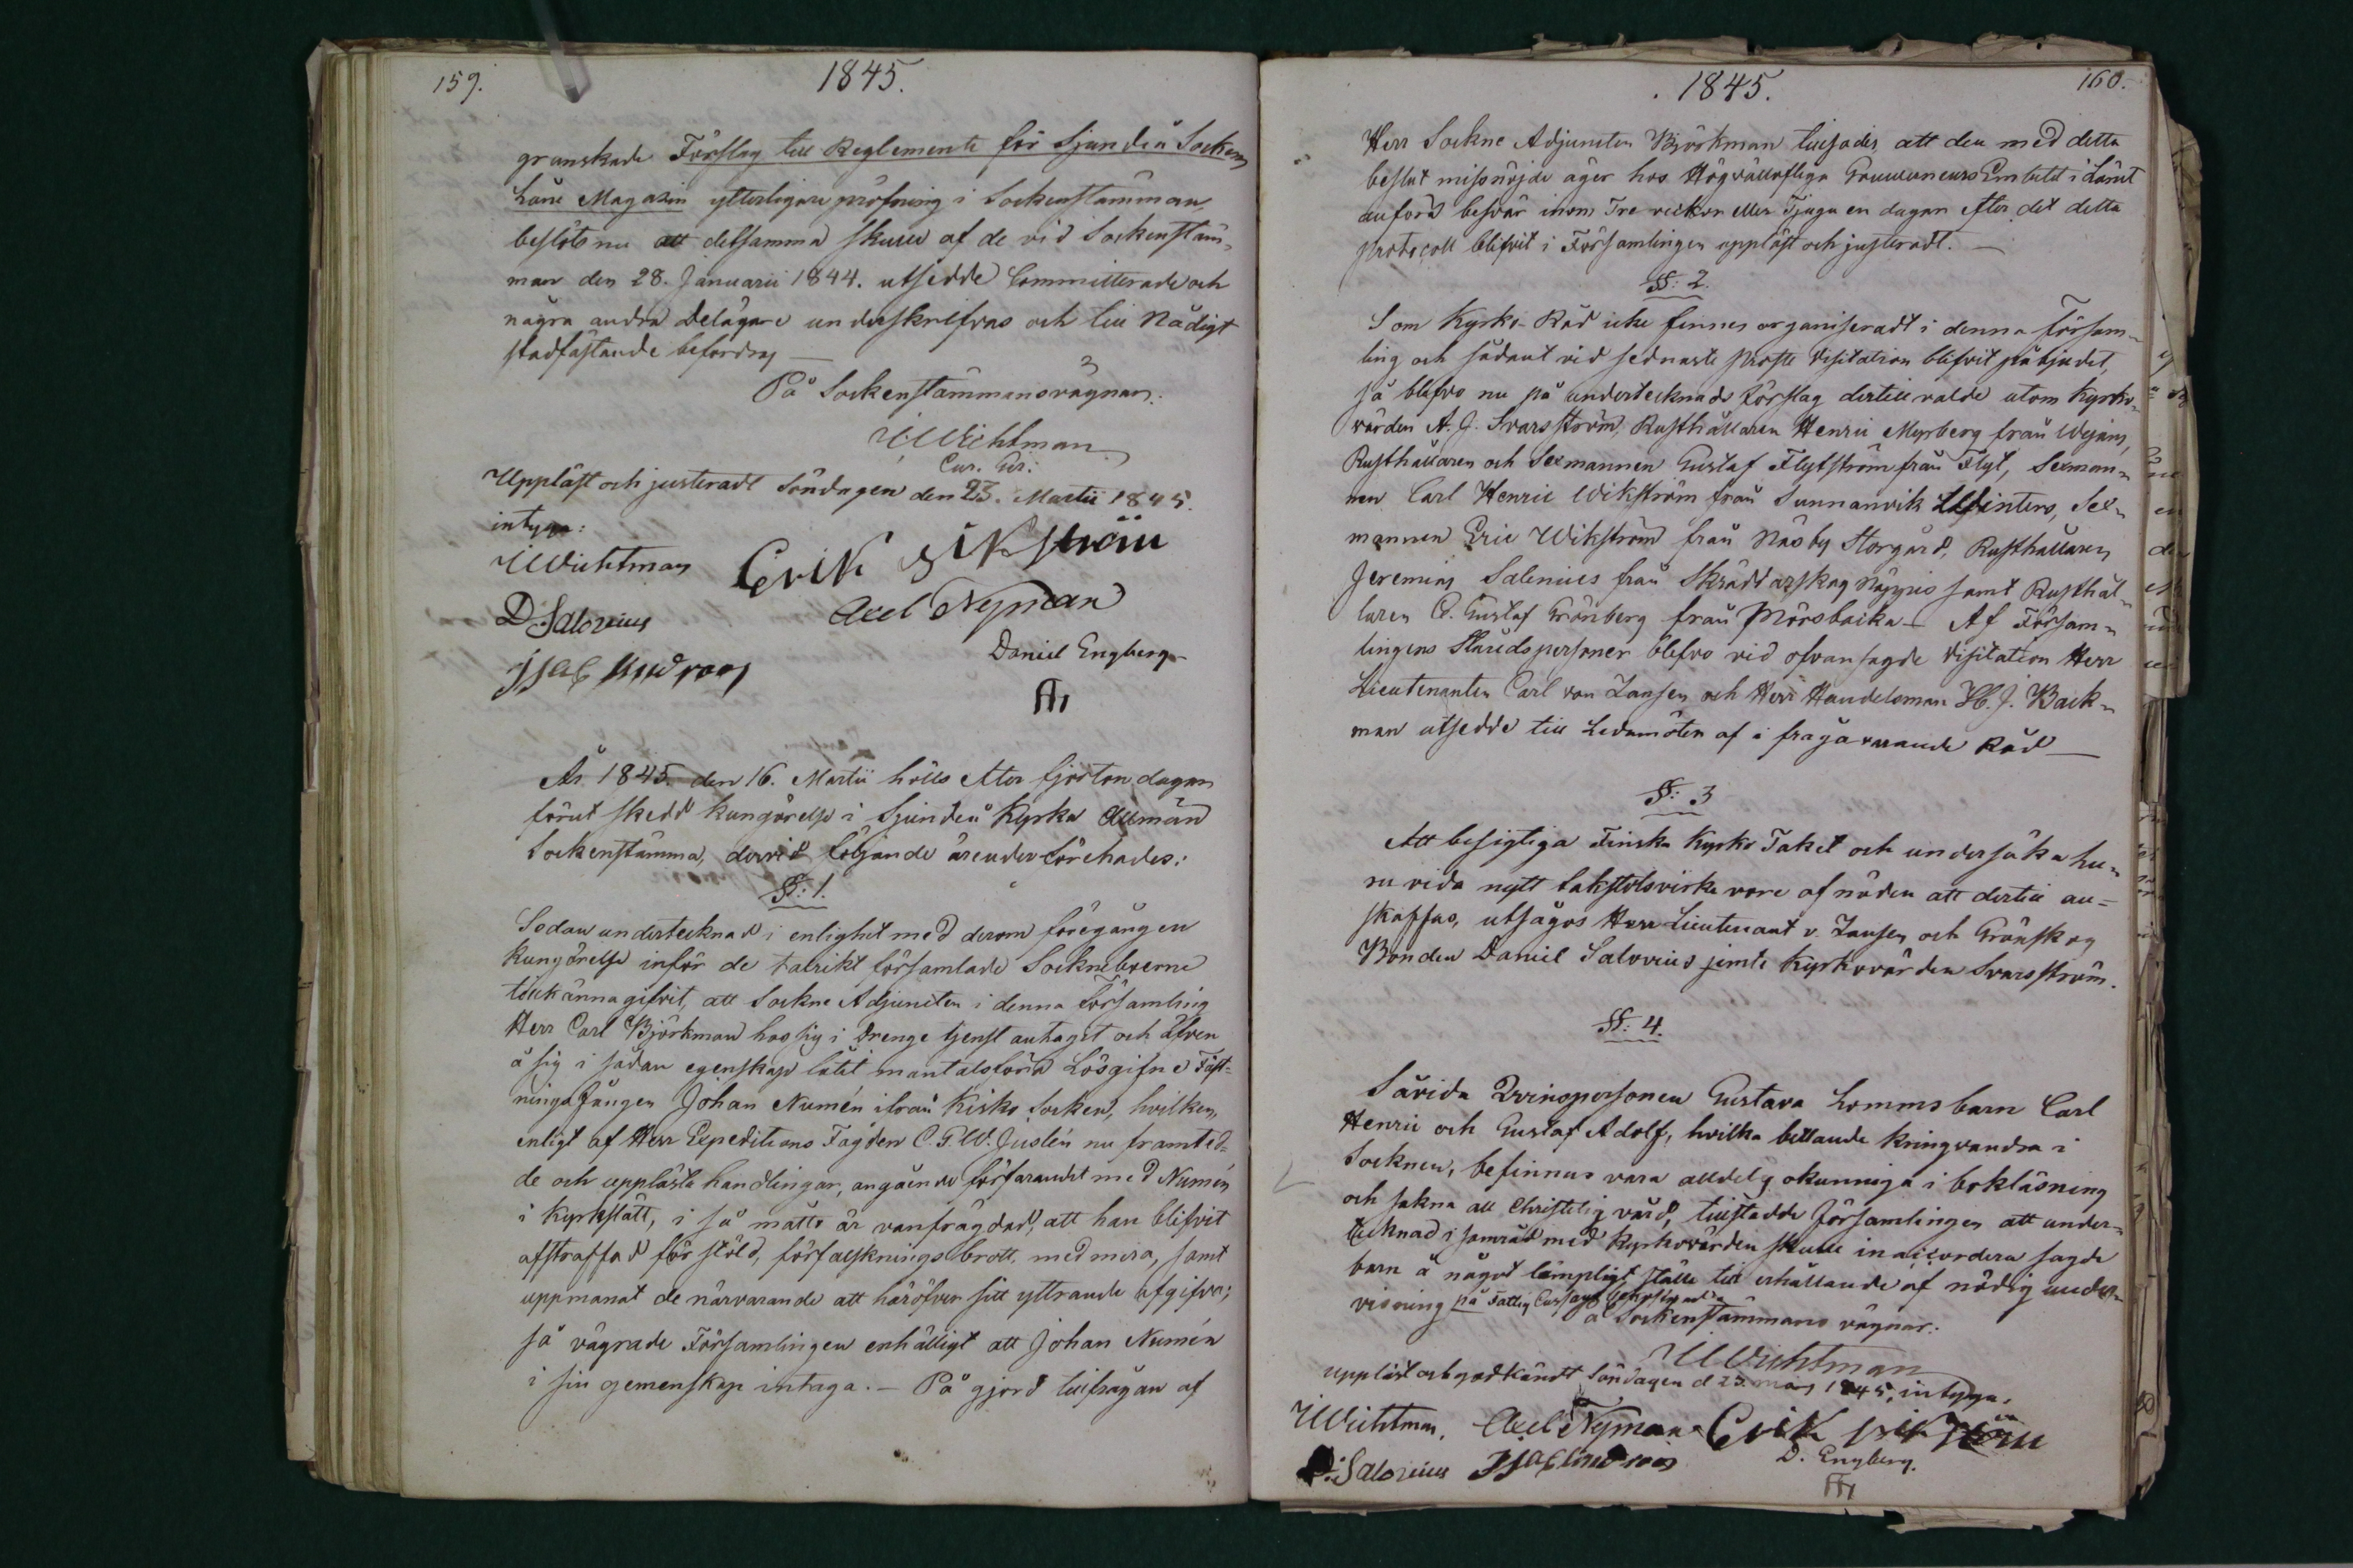 159.
1845.
granskade Förslag till Reglemente för Sjundeå Sockens
Låne Magasin ytterligare pröfning i Sockenstämman,
beslöts nu att detsamma skulle af de vid Sockenstäm-
man den 28. Januarii 1844. utsedde Committerade och
några andra Delägare underskrifvas och till Nådigt
stadfästande befordras —
På Sockenstämmans vägnar.
Wichtman
Cur. Gir.
Uppläst och justeradt Söndagen den 23. Martii 1845.
intyga:
Wichtman Erik Wikström
D. Salovius Axel Nyman
Daniel Engberg
År 1845. den 16. Martii hölls efter fjorton dagar
förut skedd kungörelse i Sjundeå Kyrka Allmän
Sockenstämma, dervid följande ärender förehades:
§: 1.
Sedan undertecknad i enlighet med derom föregången
Kungörelse inför de talrikt församlade Sockneboerne
tillkännagifvit, att Sockne Adjuncten i denna Församling
Herr Carl Björkman hos sig i Drenge tjenst antagit och äfven
å sig i sådan egenskap låtit mantalsföra Lösgifne Fäst-
ningsfången Johan Numén ifrån Kisko Socken, hvilken,
enligt af Herr Expeditions Fogden C. G. W. Juslén nu framted-
de och upplästa handlingar, angående förfarandet med Numén
i Kyrkslätt, i så måtto är vanfrägdad, att han blifvit
afstraffad för stöld, förfalsknings brott, med mera, samt
uppmanat de närvarande att häröfver sitt yttrande afgifva;
så vägrade Församlingen enhälligt att Johan Numén
i sin gemenskap intaga. — På gjord tillfrågan af
1845.
160.
Herr Sockne Adjuncten Björkman tillsades, att den med detta
beslut missnöjde äger hos Högvällofliga Gouverneurs Embetet i Länet
anföra besvär inom Tre veckor eller Tjugu en dagar efter det detta
protocoll blifvit i Församlingen uppläst och justeradt. —
§: 2.
Som Kyrko-Råd icke finnes organiseradt i denna Försam-
ling och sådant vid sednaste Prosте Visitation blifvit påbjudet,
så blefvo nu på undertecknads förslag dertill valde utom Kyrko-
värden A. J. Svarsström, Rusthållaren Henric Myrberg från Wejans,
Rusthållaren och Sexmannen Gustaf Flytström från Flyt, Sexman-
nen Carl Henric Wikström från Sunnanvik Winters, Sex-
mannen Eric Wikström från Näsby Storgård, Rusthållaren
Jeremias Salenius från Skräddarskog Nägris samt Rusthål-
laren C. Gustaf Grönberg från Mörsbacka — Af Försam-
lingens Ståndspersoner blefvo vid ofvansagde Visitation Herr
Lieutenanten Carl von Zansen och Herr Handelsman H. J. Back-
man utsedde till Ledamöter af i fråga varande Råd —
§: 3
Att besigtiga Finska Kyrko Taket och undersöka hu-
ru vida nytt takstolsvirke vore af nöden att dertill an-
skaffas, utsågos Herr Lieutenant v. Zansen och Grönskog
Bonden Daniel Salovius jemte Kyrkovärden Svarsström.
§: 4.
Såvida Qvinspersonen Gustava Lomms barn Carl
Henric och Gustaf Adolf, hvilka bettlande kringvandra i
Socknen, befinnas vara alldeles okunniga i bokläsning
och sakna all Christelig vård, tillstadde Församlingen att under-
tecknad i samråd med Kyrkovärden skulle inaccordera sagde
barn å något lämpligt ställe till erhållande af nödig under-
visning på Fattig Cassans bekostnad.
På Sockenstämmans vägnar.
Wichtman
Uppläst och godkändt Söndagen d 23 mars 1845, intyga,
Wichtman, Axel Nyman Erik Wikström
D. Salovius D. Engberg.